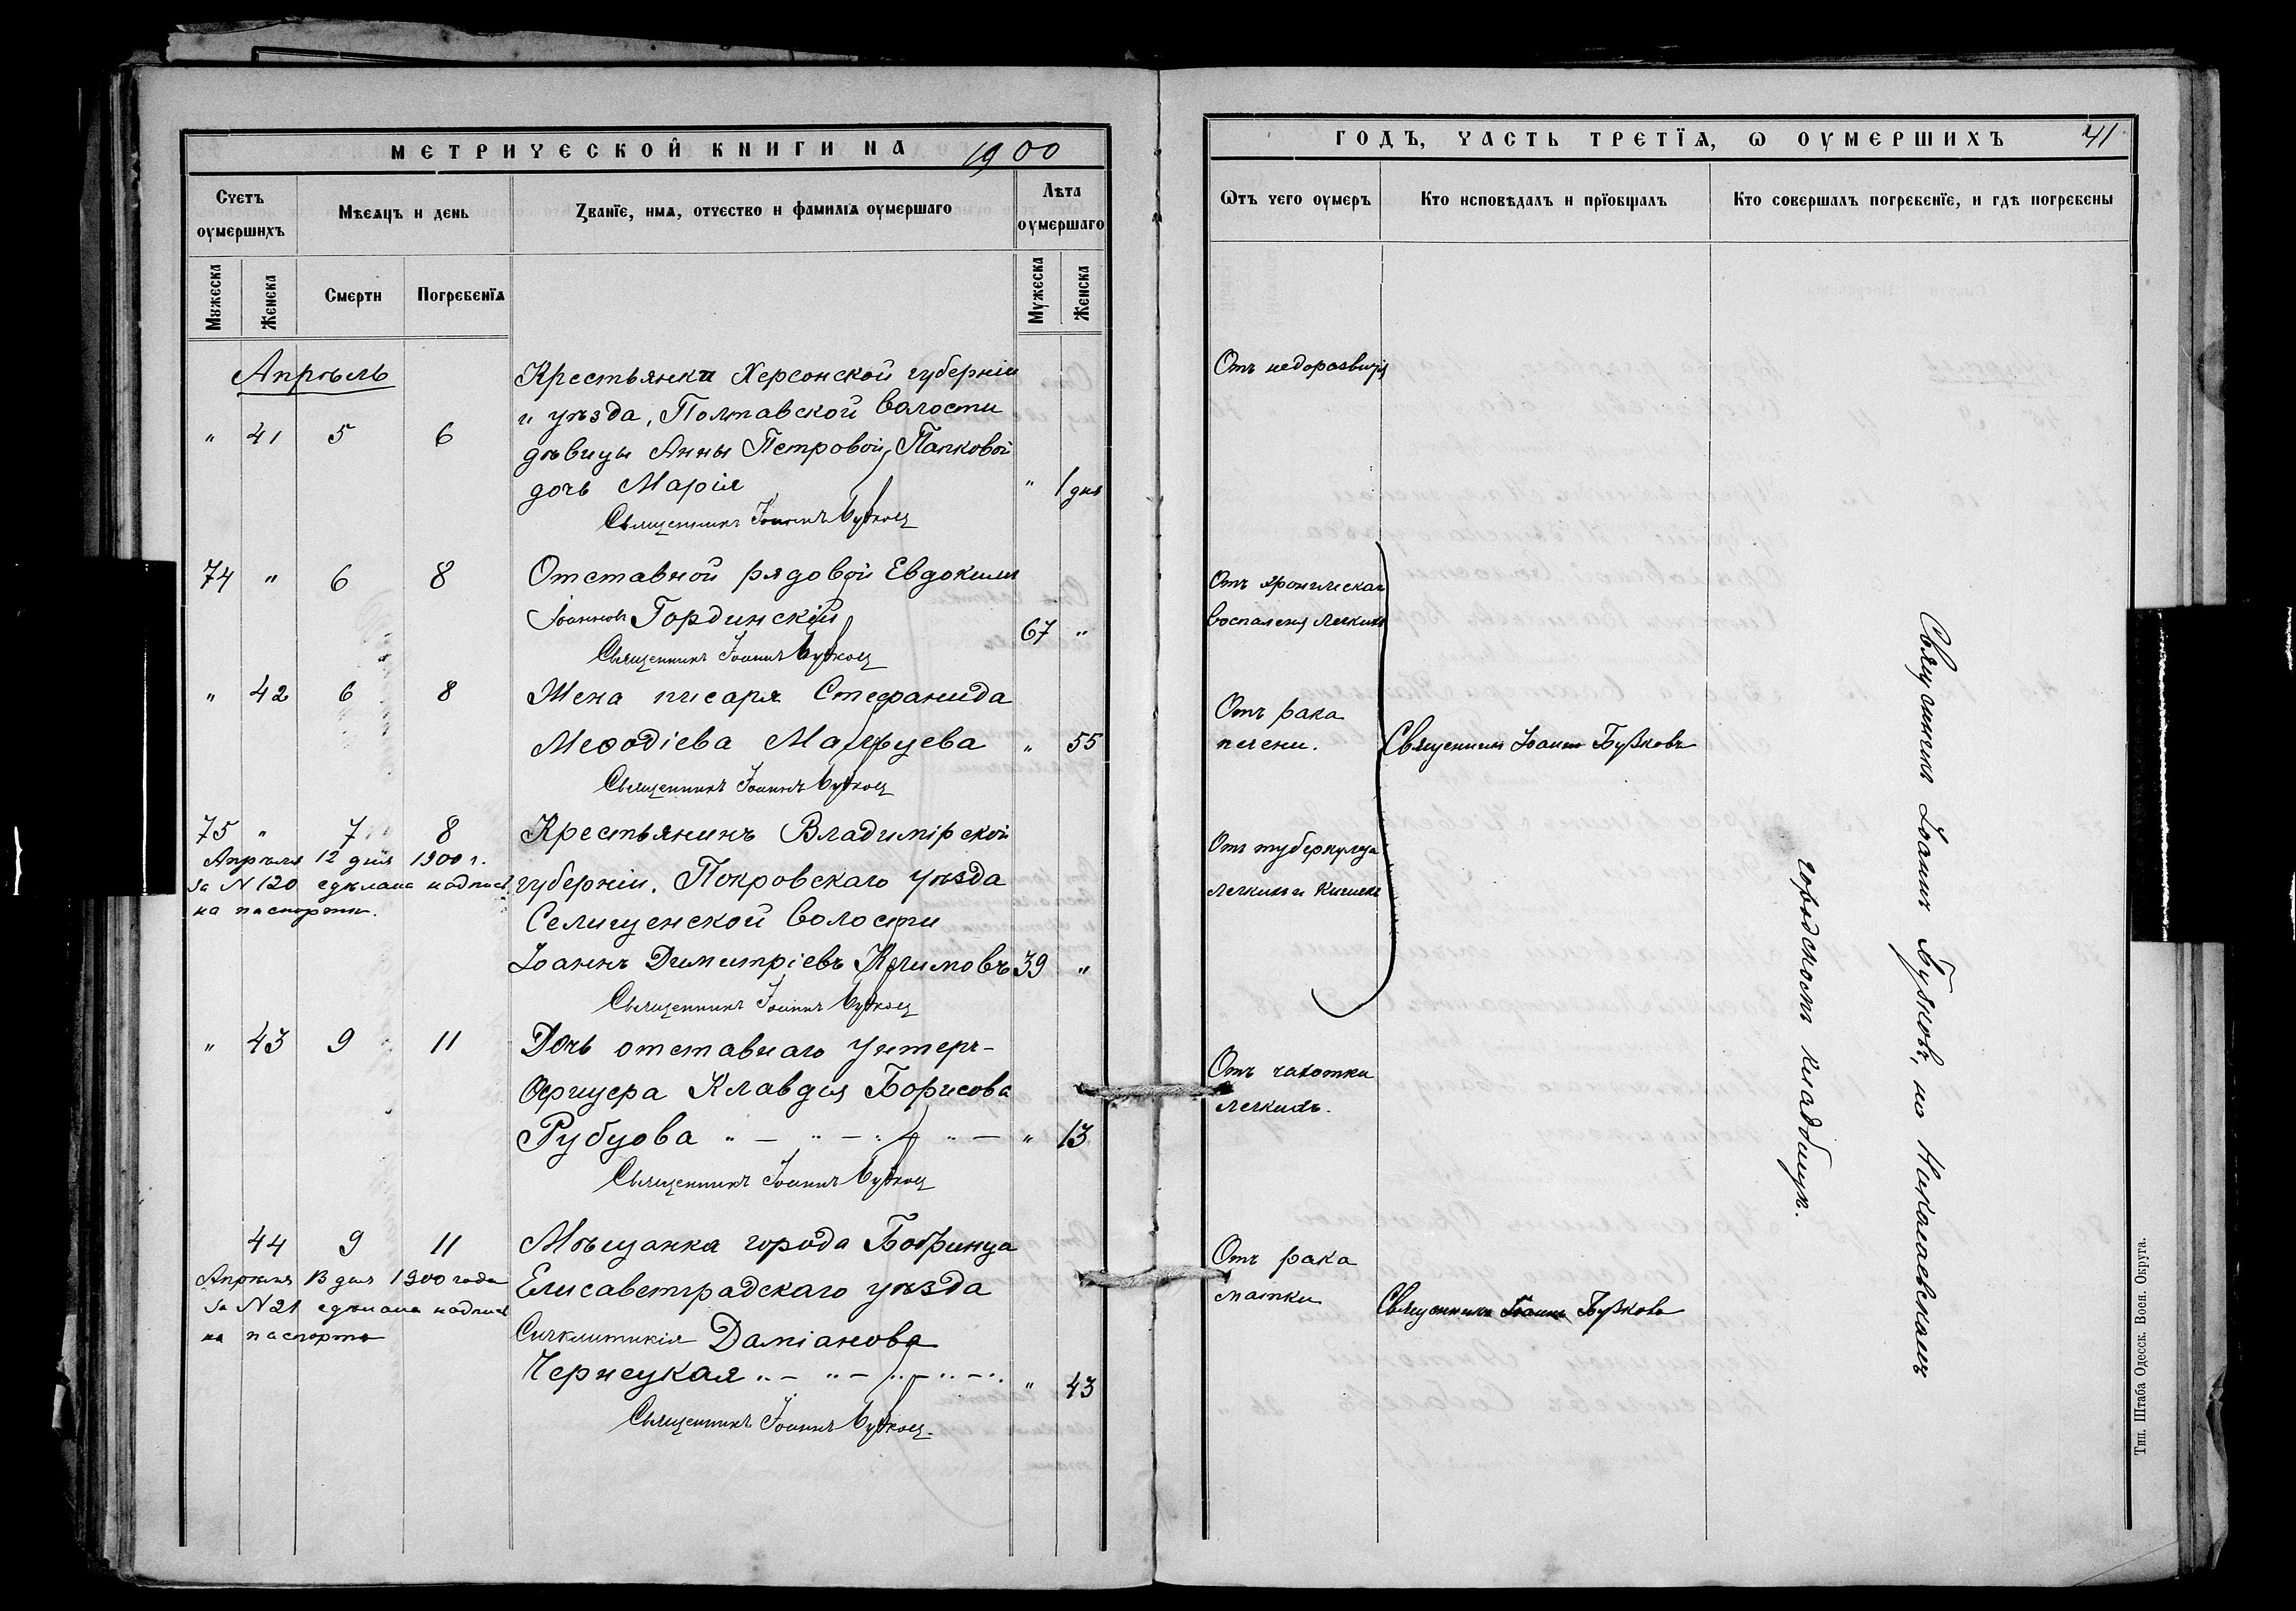 МЕТРИЧЕСКОЙ КНИГИ НА 1900
Счетъ оумершихъ
Мѣсяцъ и день
Званїе, имя, отчество и фамилїя оумершаго
Лѣта оумершаго
Мужеска
Женска
Смерти
Погребенїя
Мужеска
Женска
Апрѣль
" 41 5 6
Крестьянки Херсонской губерніи
и уѣзда, Полтавской волости
дѣвицы Анны Петровой Папковой
дочь Марія " 1 дня
Священникъ Іоаннъ
74 " 6 8
Отставной рядовой Евдокимъ
Іоанновъ Гординскій 67 "
Священникъ Іоаннъ
" 42 6 8
Жена писаря Стефанида
Меѳодіева " 55
Священникъ Іоаннъ
75 " 7 8
Апрѣля 12 дня 1900 г.
за N 120 сдѣлана надпись
на паспортѣ.
Крестьянинъ Владимірской
губерніи, Покровскаго уѣзда
Селищенской волости
Іоаннъ Димитріевъ Климовъ 39 "
Священникъ Іоаннъ
" 43 9 11
Дочь отставнаго унтеръ-
офицера Клавдія Борисова
Рубцова " — " — " — " — " 13
Священникъ Іоаннъ
44 9 11
Апрѣля 13 дня 1900 года
за N 21 сдѣлана надпись
на паспортѣ
Мѣщанка города Бобринца
Елисаветградскаго уѣзда
Синклитикія Даміанова
Чернецкая " — " — " — " — " 43
Священникъ Іоаннъ
ГОДЪ, ЧАСТЬ ТРЕТЇЯ, Ѡ ОУМЕРШИХЪ 41
Ѿтъ чего оумеръ
Кто исповѣдалъ и прїобщалъ
Кто совершалъ погребенїе, и гдѣ погребены
Отъ недоразвитія
Отъ хроническаго
воспаленія легкихъ
Отъ рака
печени.
Священникъ Іоаннъ Бужковъ
Отъ туберкулеза
легкихъ и кишекъ
Отъ чахотки
легкихъ.
Отъ рака
матки
Священникъ Іоаннъ Бужковъ
Священникъ Іоаннъ Бужковъ, на Николаевскомъ
городскомъ кладбищѣ.
Тип. Штаба Одесск. Воен. Округа.